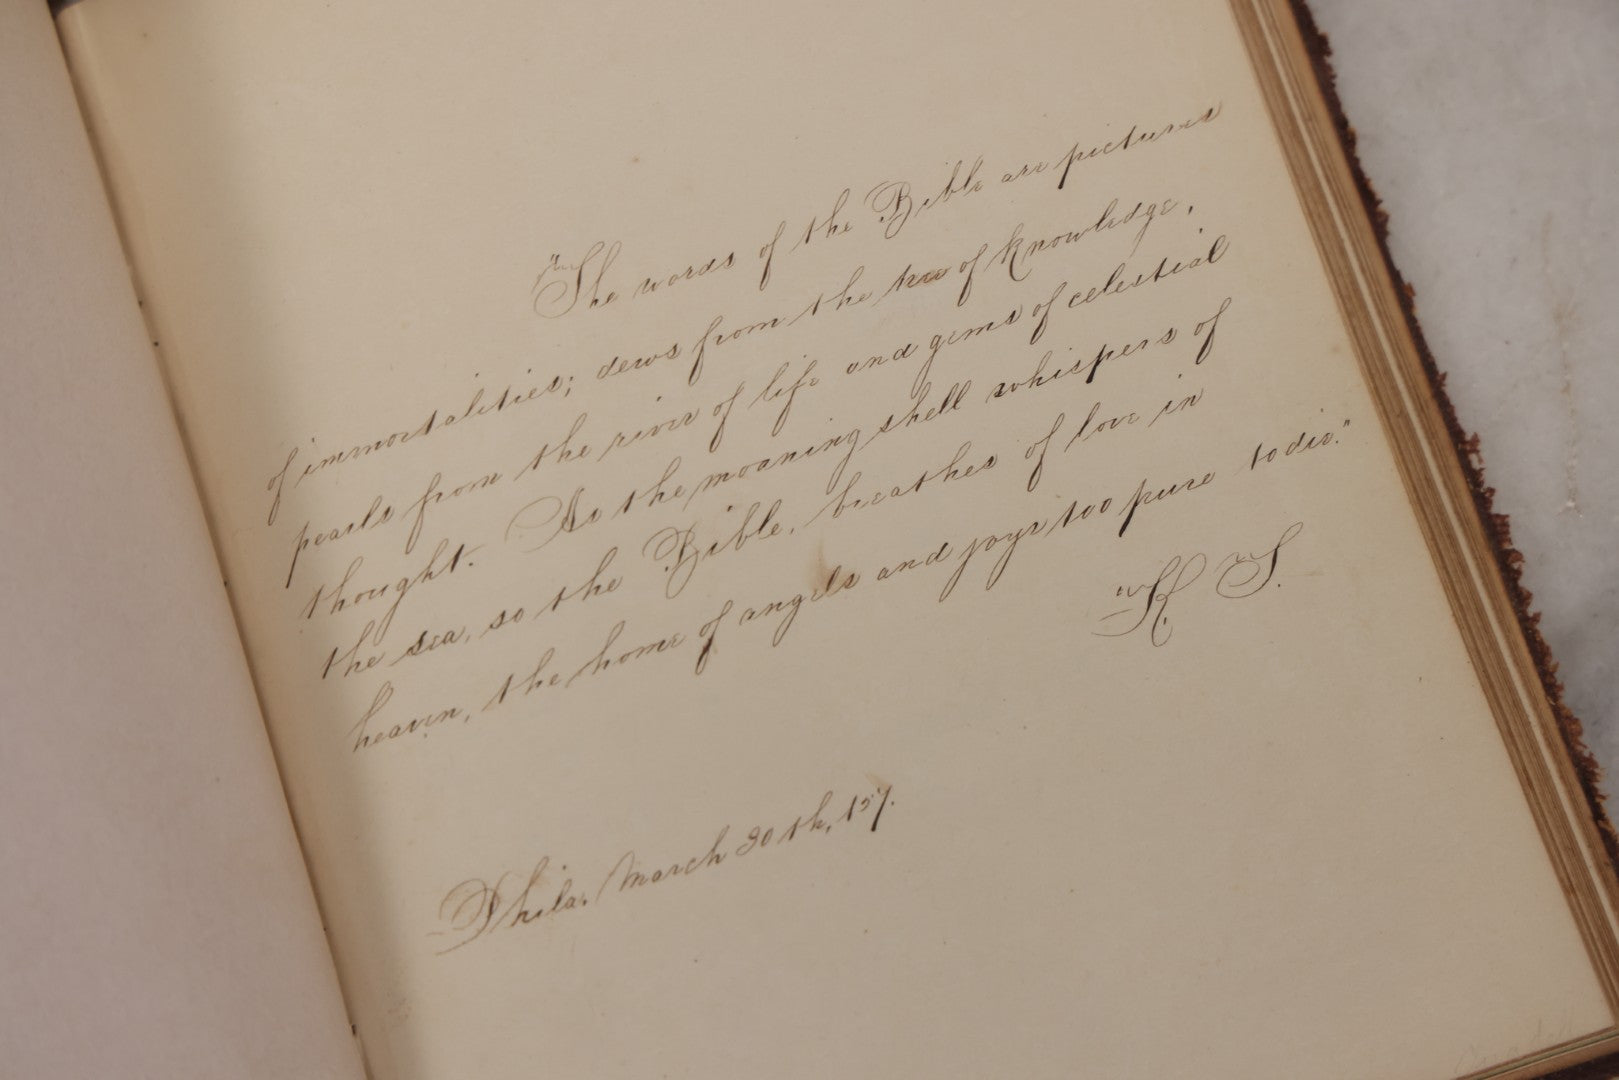 "The words of the Bible are pictures
of immortalities; dews from the tree of knowledge,
pearls from the river of life and gems of celestial
thought. As the moaning shell whispers of
the sea, so the Bible, breathes of love in
heaven, the home of angels and joys too pure to die."
K. S.
Phila. March 30th, '57.